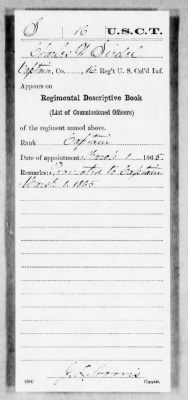 S 16 U.S.C.T.
Charles
Captain, Co. , 16 Reg't U. S. Col'd Inf.
Appears on
Regimental Descriptive Book
(List of Commissioned Officers)
of the regiment named above.
Rank Captain
Date of appointment March 1, 1865.
Remarks: Promoted to Captain
March 1, 1865
Copyist.